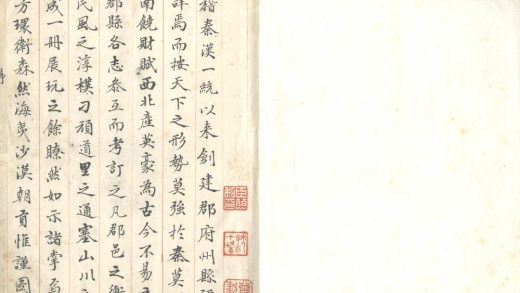 稽秦漢一統以来創建郡府州縣
詳焉而按天下之形勢莫強於秦莫
南饒財賦西北產英豪為古今不易
郡縣各志叅互而考訂之凡郡邑之
民風之淳樸刁頑道里之通塞山川之
成一冊展玩之餘瞭然如示諸掌焉
方環衛森然海夷沙漠朝貢惟謹圖
序